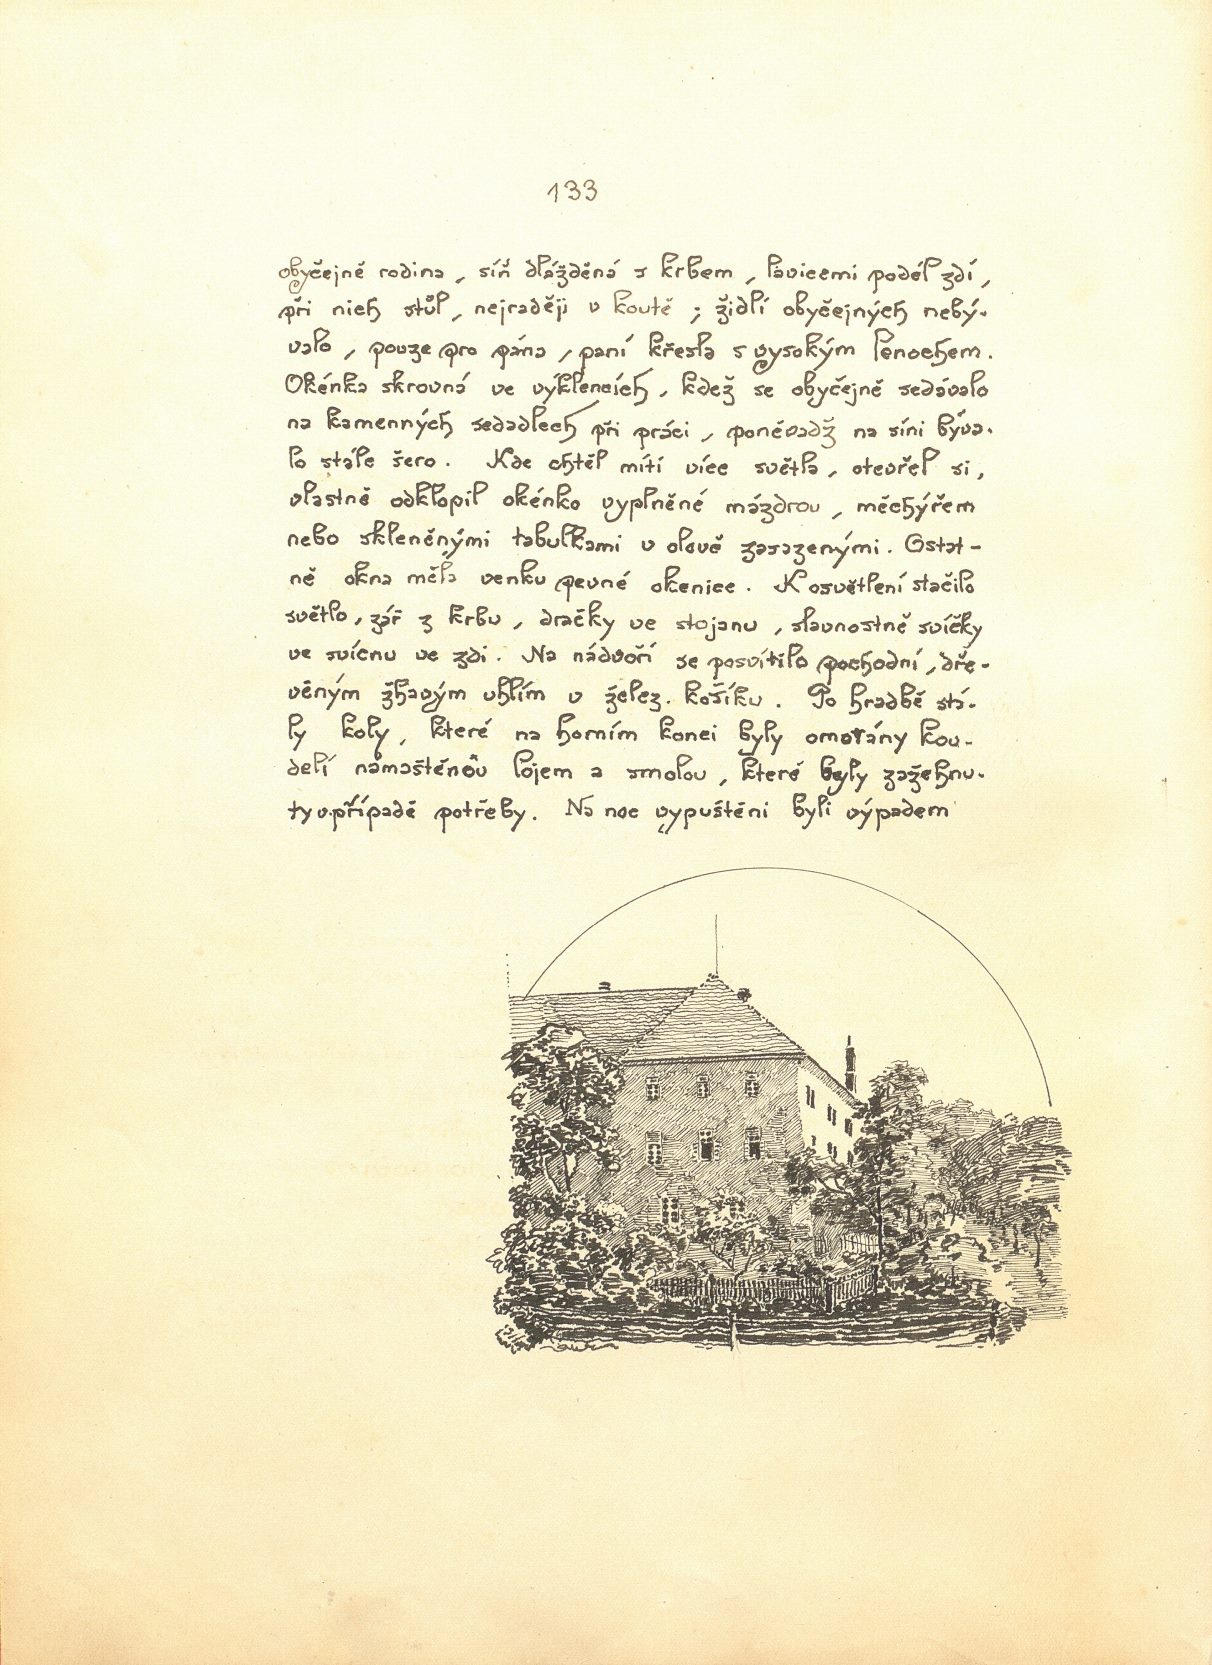 133
obyčejně rodina, síň dlážděná s krbem, lavicemi podél zdí,
při nich stůl, nejraději v koutě; židlí obyčejných nebý-
valo, pouze pro pána, paní křesla s vysokým lenochem.
Okénka skrovná ve výklencích, kdež se obyčejně sedávalo
na kamenných sedadlech při práci, poněvadž na síni býva-
lo stále šero. Kde chtěl míti více světla, otevřel si,
vlastně odklopil okénko vyplněné mázdrou, měchýřem
nebo skleněnými tabulkami v olově zasazenými. Ostat-
ně okna měla venku pevné okenice. K osvětlení stačilo
světlo, zář z krbu, dračky ve stojanu, slavnostně svíčky
ve svícnu ve zdi. Na nádvoří se posvítilo pochodní, dře-
věným žhavým uhlím v želez. košíku. Po hradbě stá-
ly koly, které na horním konci byly omotány kou-
delí namaštěnou lojem a smolou, které byly zažehnu-
ty v případě potřeby. Na noc vypuštěni byli výpadem